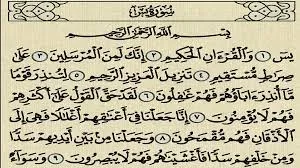 سورة يس
بِسْمِ اللَّهِ الرَّحْمَٰنِ الرَّحِيمِ
يسٓ ١ وَالْقُرْءَانِ الْحَكِيمِ ٢ إِنَّكَ لَمِنَ الْمُرْسَلِينَ ٣ عَلَىٰ
صِرَاطٍ مُّسْتَقِيمٍ ٤ تَنزِيلَ الْعَزِيزِ الرَّحِيمِ ٥ لِتُنذِرَ قَوْمًا
مَّا أُنذِرَ ءَابَاؤُهُمْ فَهُمْ غَٰفِلُونَ ٦ لَقَدْ حَقَّ الْقَوْلُ عَلَىٰ أَكْثَرِهِمْ
فَهُمْ لَا يُؤْمِنُونَ ٧ إِنَّا جَعَلْنَا فِي أَعْنَٰقِهِمْ أَغْلَٰلًا فَهِيَ إِلَى
الْأَذْقَانِ فَهُم مُّقْمَحُونَ ٨ وَجَعَلْنَا مِنۢ بَيْنِ أَيْدِيهِمْ سَدًّا
وَمِنْ خَلْفِهِمْ سَدًّا فَأَغْشَيْنَٰهُمْ فَهُمْ لَا يُبْصِرُونَ ٩ وَسَوَآءٌ